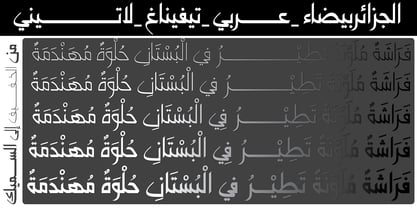 الجزائربيضاء _ عربي _ تيفيناغ _ لاتيني
فَرَاشَةٌ مُلَوَّنَةٌ تَطِيْرُ فِي الْبُسْتَانِ حُلْوَةٌ مُهَنْدَمَةٌ
فَرَاشَةٌ مُلَوَّنَةٌ تَطِيْرُ فِي الْبُسْتَانِ حُلْوَةٌ مُهَنْدَمَةٌ
فَرَاشَةٌ مُلَوَّنَةٌ تَطِيْرُ فِي الْبُسْتَانِ حُلْوَةٌ مُهَنْدَمَةٌ
فَرَاشَةٌ مُلَوَّنَةٌ تَطِيْرُ فِي الْبُسْتَانِ حُلْوَةٌ مُهَنْدَمَةٌ
فَرَاشَةٌ مُلَوَّنَةٌ تَطِيْرُ فِي الْبُسْتَانِ حُلْوَةٌ مُهَنْدَمَةٌ
من الخفيف إلى السميك